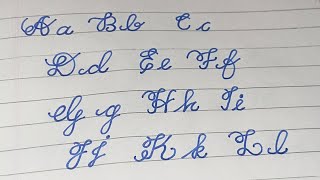 A a B b C c
D d E e F f
G g H h I i
J j K k L l